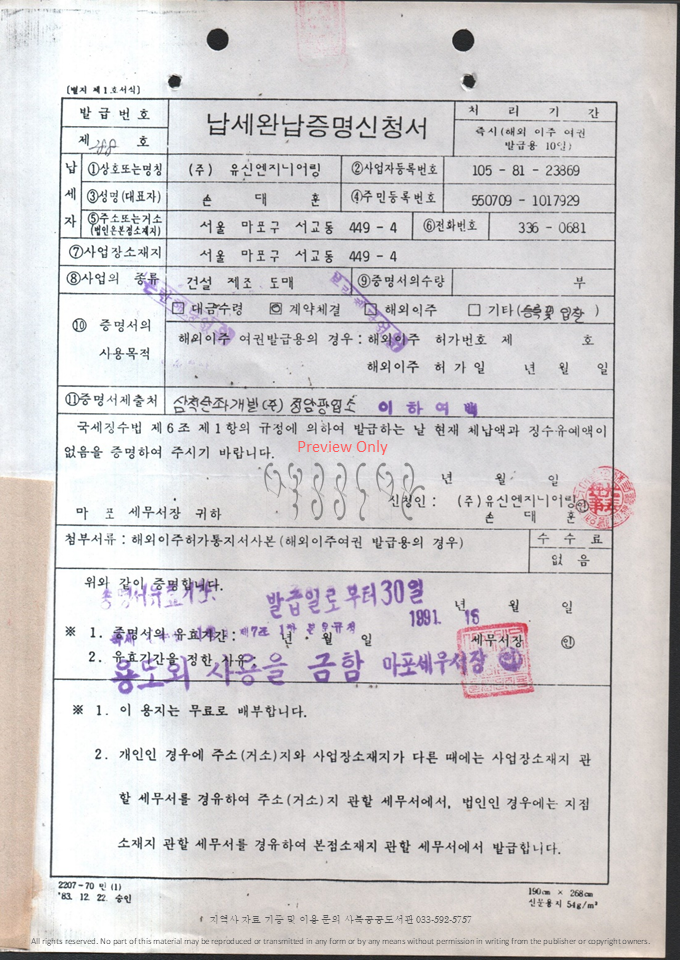 [별지 제1호서식]
발급번호
제 388 호
납세완납증명신청서
처 리 기 간
즉시(해외 이주 여권
발급용 10일)
납세자
①상호또는명칭 (주) 유신엔지니어링 ②사업자등록번호 105 - 81 - 23869
③성명(대표자) 손 대 훈 ④주민등록번호 550709 - 1017929
⑤주소또는거소
(법인은본점소재지)
서울 마포구 서교동 449 - 4 ⑥전화번호 336 - 0681
⑦사업장소재지 서울 마포구 서교동 449 - 4
⑧사업의 종류 건설 제조 도매 ⑨증명서의수량 부
⑩ 증명서의
사용목적
대금수령 계약체결 해외이주 기타( )
해외이주 여권발급용의 경우 : 해외이주 허가번호 제 호
해외이주 허가일 년 월 일
⑪증명서제출처 삼척탄좌개발(주) 정암광업소 이하여백
국세징수법 제6조 제1항의 규정에 의하여 발급하는 날 현재 체납액과 징수유예액이
없음을 증명하여 주시기 바랍니다.
Preview Only
년 월 일
신청인 : (주)유신엔지니어링 인
손 대 훈
마 포 세무서장 귀하
첨부서류 : 해외이주허가통지서사본(해외이주여권 발급용의 경우)
수 수 료
없 음
위와 같이 증명합니다.
증명서유효기간: 발급일로부터 30일
1991. 16
년 월 일
※ 1. 증명서의 유효기간 : 년 월 일
세무서장 인
2. 유효기간을 정한 사유 :
용도외 사용을 금함 마포세무서장
※ 1. 이 용지는 무료로 배부합니다.
2. 개인인 경우에 주소(거소)지와 사업장소재지가 다른 때에는 사업장소재지 관
할 세무서를 경유하여 주소(거소)지 관할 세무서에서, 법인인 경우에는 지점
소재지 관할 세무서를 경유하여 본점소재지 관할 세무서에서 발급합니다.
2207-70 민 (1)
'83. 12. 22. 승인
190㎝ × 268㎝
신문용지 54g/㎡
지역사 자료 기증 및 이용 문의 사북공공도서관 033-592-5757
All rights reserved. No part of this material may be reproduced or transmitted in any form or by any means without permission in writing from the publisher or copyright owners.